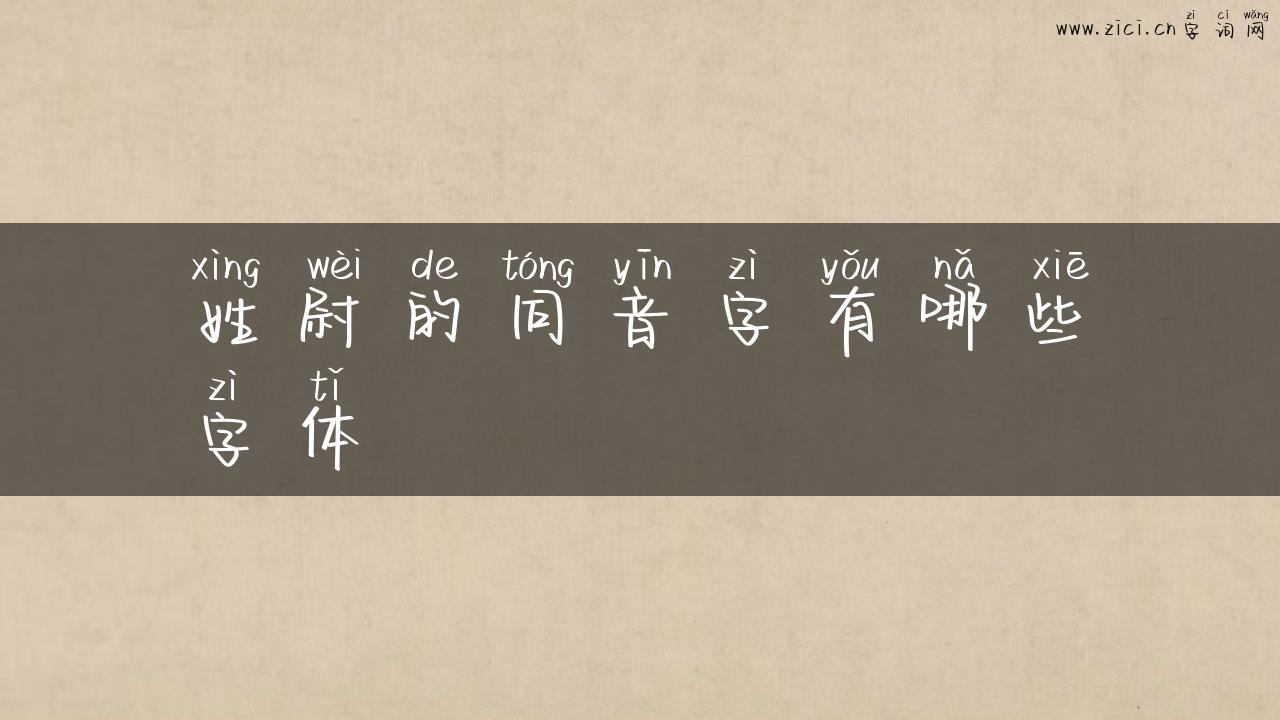 zì cí wǎng
www.zici.cn 字词网
xìng wèi de tóng yīn zì yǒu nǎ xiē
姓尉的同音字有哪些
zì tǐ
字体